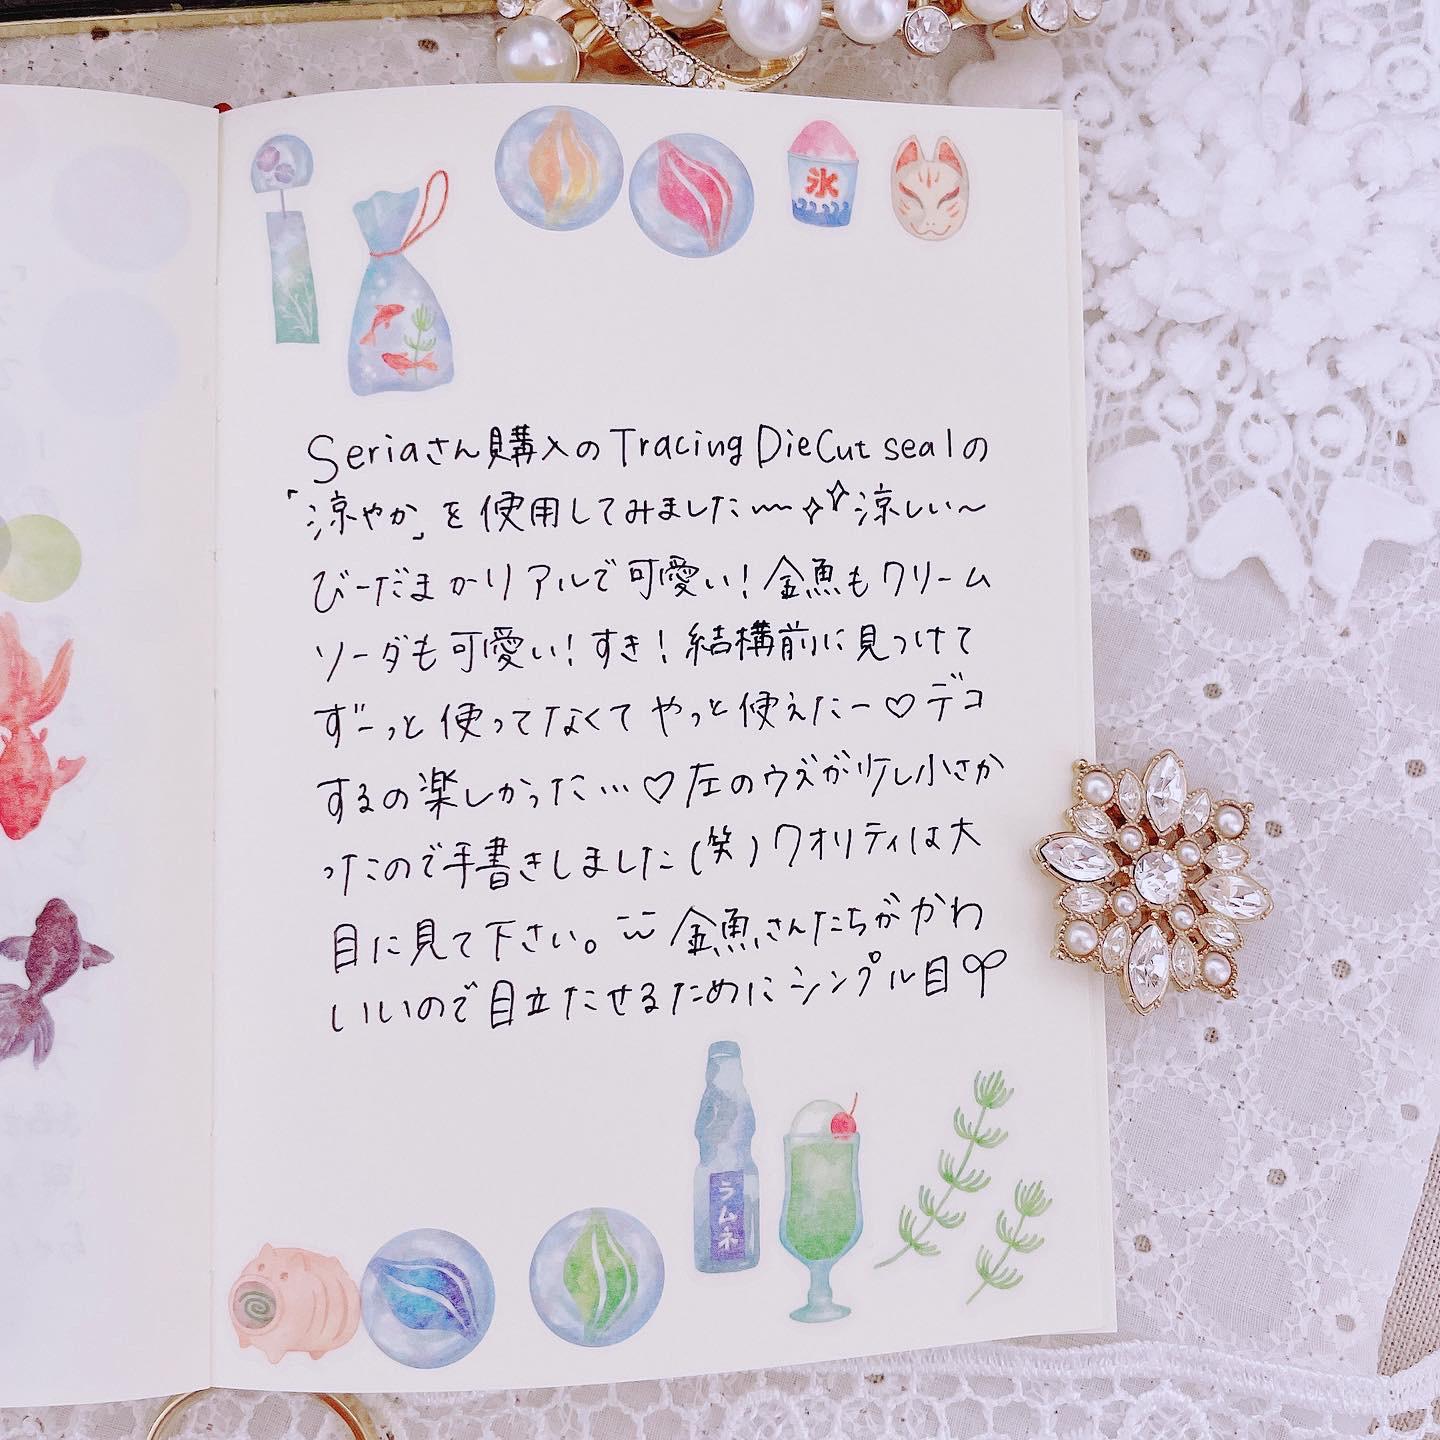 氷
Seriaさん購入のTracing DieCut sealの
「涼やか」を使用してみました〜✧✧涼しい〜
びーだまがリアルで可愛い！金魚もクリーム
ソーダも可愛い！すき！結構前に見つけて
ずーっと使ってなくてやっと使えたー♡デコ
するの楽しかった…♡左のウズが少し小さか
ったので手書きしました(笑)クオリティは大
目に見て下さい。金魚さんたちがかわ
いいので目立たせるためにシンプル目
ラムネ